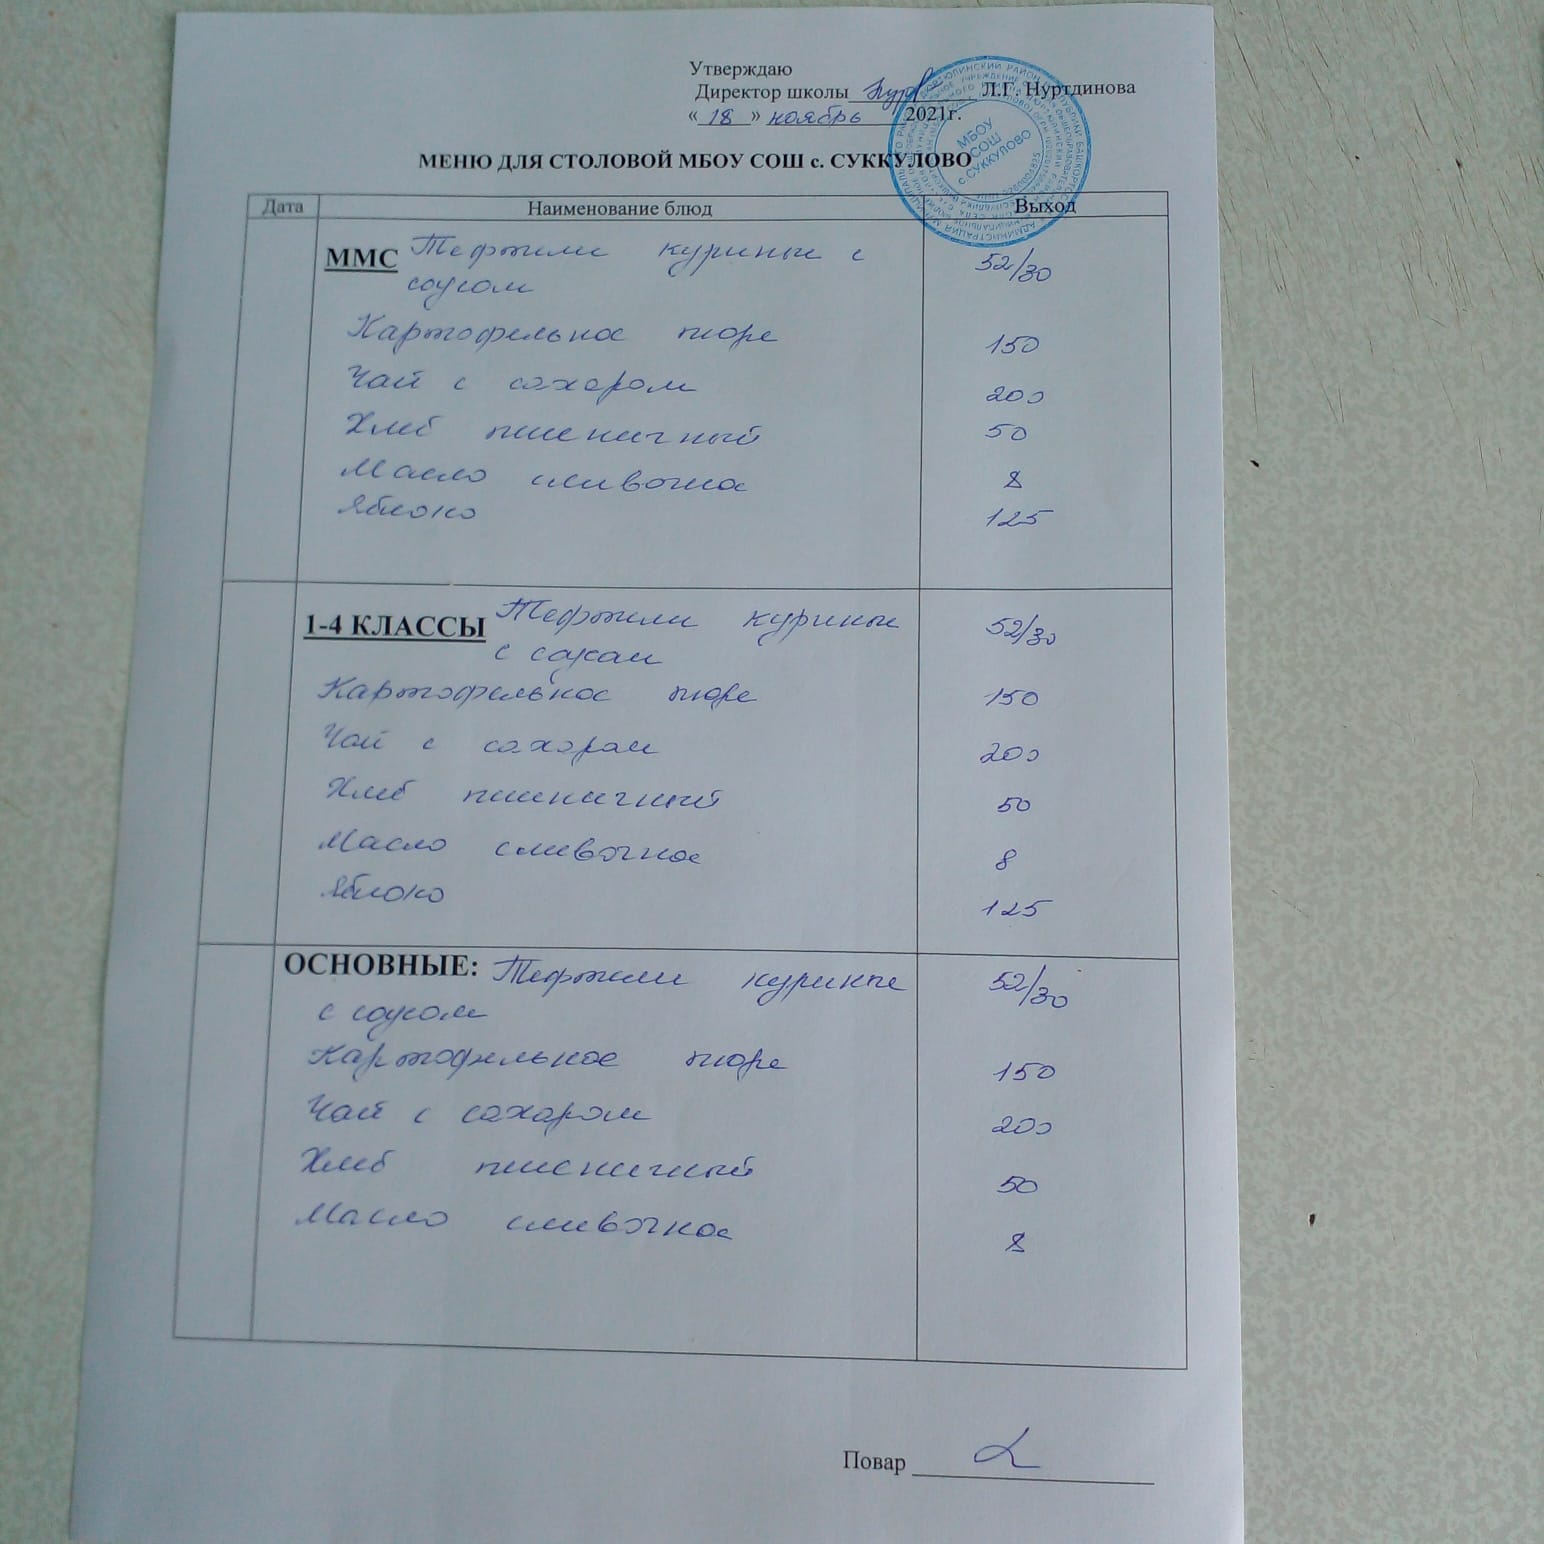 Утверждаю
Директор школы Л.Г. Нуртдинова
« 18 » ноябрь 2021г.
МЕНЮ ДЛЯ СТОЛОВОЙ МБОУ СОШ с. СУККУЛОВО
МБОУ
СОШ
с.СУККУЛОВО
Дата Наименование блюд Выход
ММС Тефтели куриные с 52/30
соусом
Картофельное пюре 150
Чай с сахаром 200
Хлеб пшеничный 50
Масло сливочное 8
Яблоко 125
1-4 КЛАССЫ Тефтели куриные 52/30
с соусом
Картофельное пюре 150
Чай с сахаром 200
Хлеб пшеничный 50
Масло сливочное 8
Яблоко 125
ОСНОВНЫЕ: Тефтели куриные 52/30
с соусом
Картофельное пюре 150
Чай с сахаром 200
Хлеб пшеничный 50
Масло сливочное 8
Повар